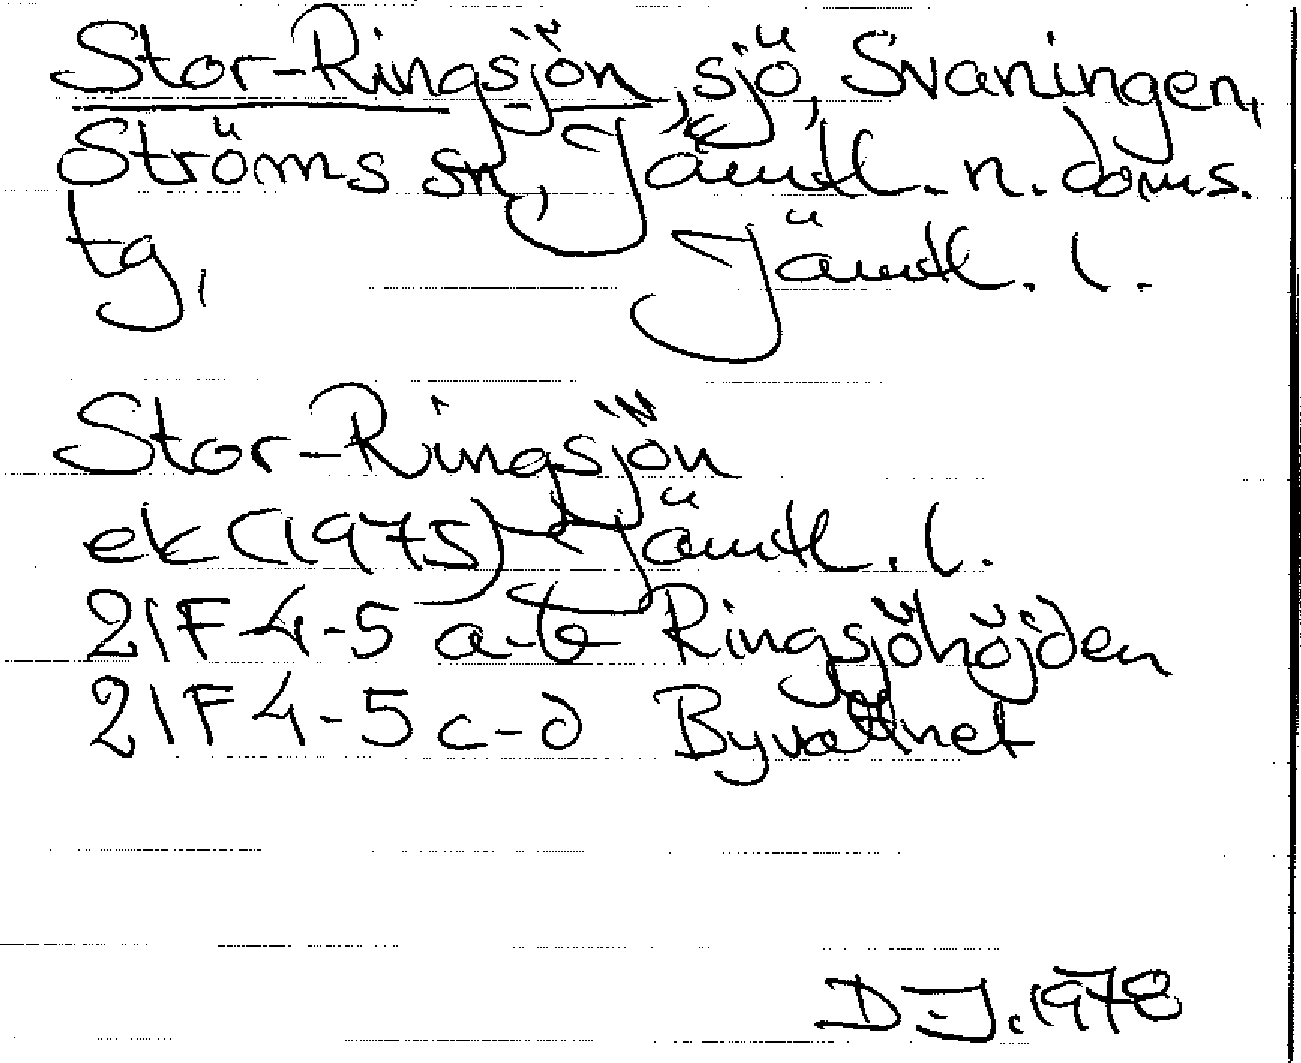 Stor-Ringsjön, sjö, Svaningen,
Ströms sn, Jämtl. n. doms.
tg, Jämtl. l.
Stor-Ringsjön
ek (1975) Jämtl. l.
21F 4-5 a-b Ringsjöhöjden
21F 4-5 c-d Byvattnet
D.J. 1978